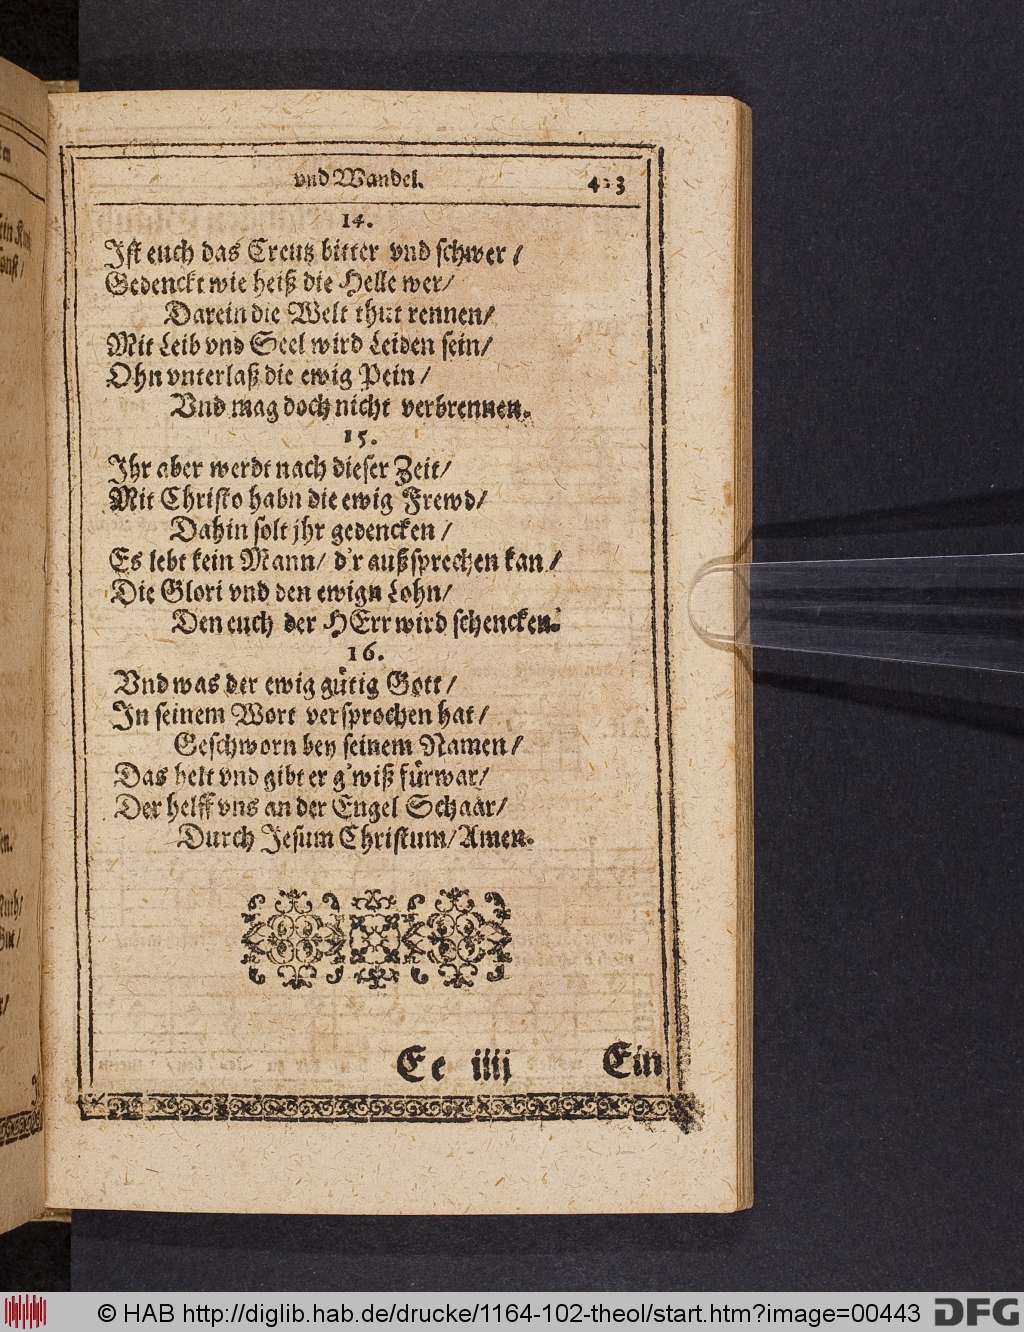 vnd Wandel. 423
14.
Ist euch das Creutz bitter vnd schwer /
Gedenckt wie heiß die Helle wer /
Darein die Welt thut rennen /
Mit Leib vnd Seel wird Leiden sein /
Ohn vnterlaß die ewig Pein /
Vnd mag doch nicht verbrennen.
15.
Ihr aber werdt nach dieser Zeit /
Mit Christo habn die ewig Frewd /
Dahin solt jhr gedencken /
Es lebt kein Mann / d'r außsprechen kan /
Die Glori vnd den ewign Lohn /
Den euch der HErr wird schencken.
16.
Vnd was der ewig gütig Gott /
In seinem Wort versprochen hat /
Geschworn bey seinem Namen /
Das helt vnd gibt er g'wiß fürwar /
Der helff vns an der Engel Schaar /
Durch Jesum Christum / Amen.
Ee iiij Ein
© HAB http://diglib.hab.de/drucke/1164-102-theol/start.htm?image=00443 DFG